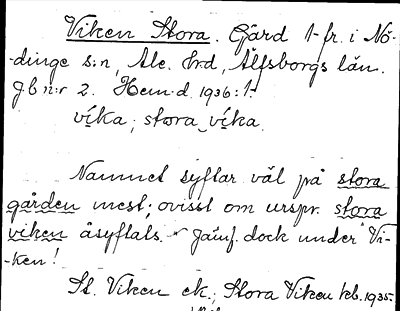 Viken Stora. Gård 1 fr. i Nö-
-dinge s:n, Ale hrd, Älfsborgs län.
Jb n:r 2. Hem.d. 1936: 1-
víka; stora víka.
Namnet syftar väl på stora
gården mest; ovisst om urspr. stora
viken åsyftats. Jämf. dock under Vi-
-ken!
St. Viken ek.; Stora Viken kb. 1935-